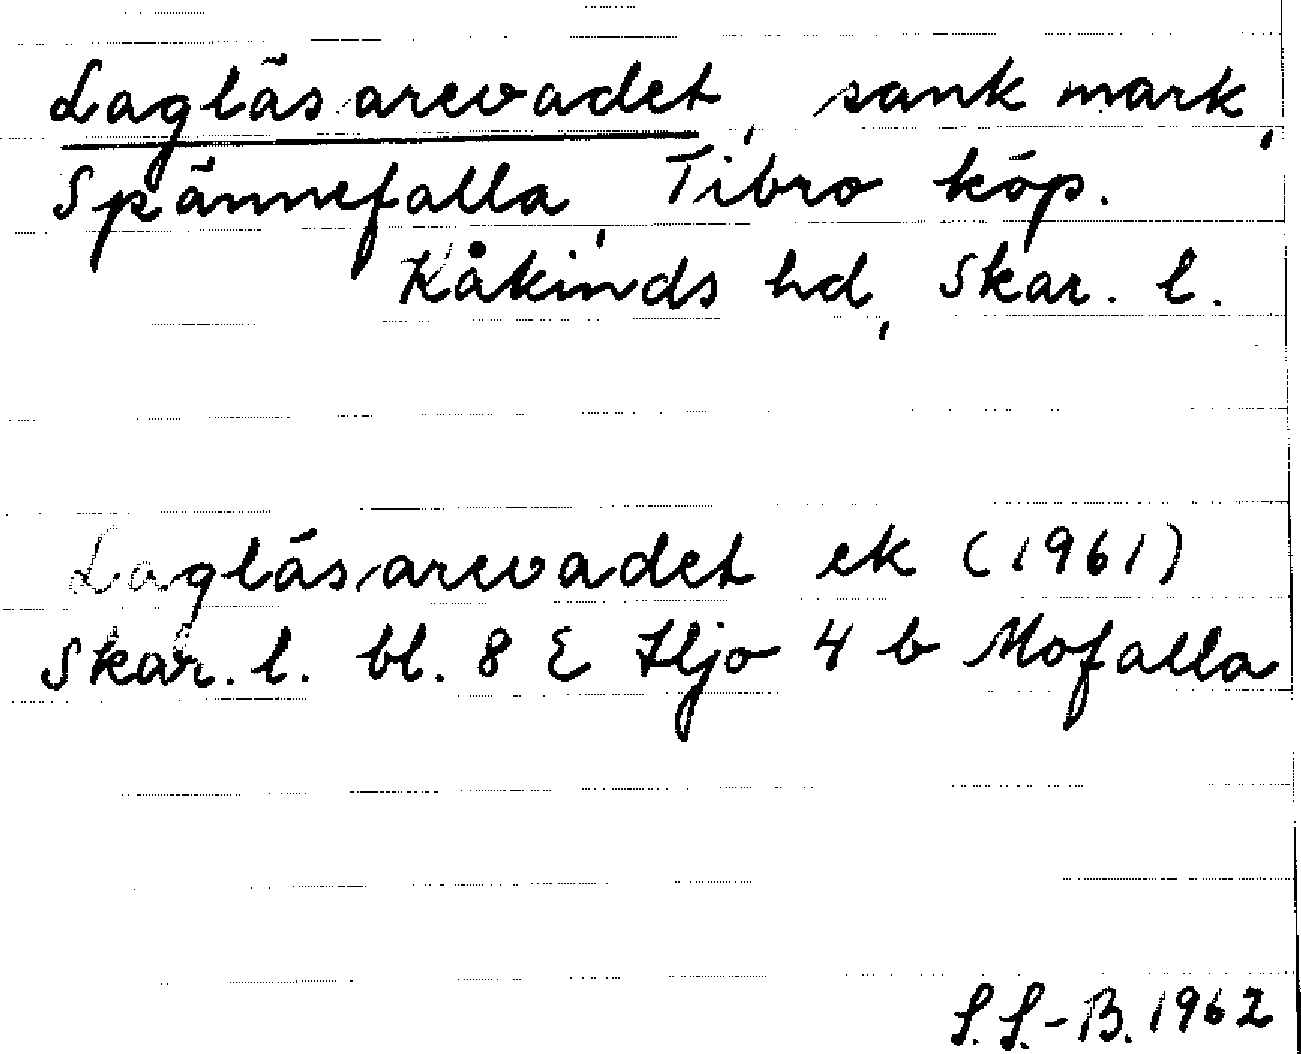 Lagläsarevadet, sank mark,
Spännefalla, Tibro köp.
Kåkinds hd, Skar. l.
Lagläsarevadet ek (1961)
Skar. l. bl. 8 E Hjo 4 b Mofalla
S.S.-B. 1962